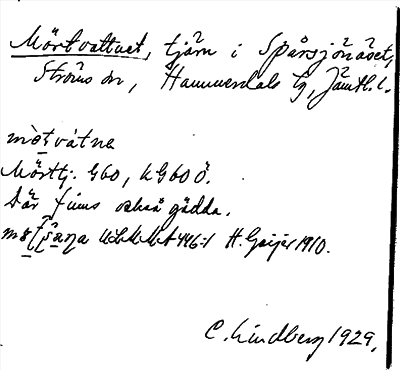 Mörtvattnet, tjärn i Sparsjönäset,
Ströms sn, Hammerdals tg, Jämtl. l.
mòt̤vátnə
Mörttj. G60, kG60 Ö.
Där finns också gädda.
ULMA 446:1 H. Geijer 1910.
C. Lindberg 1929.